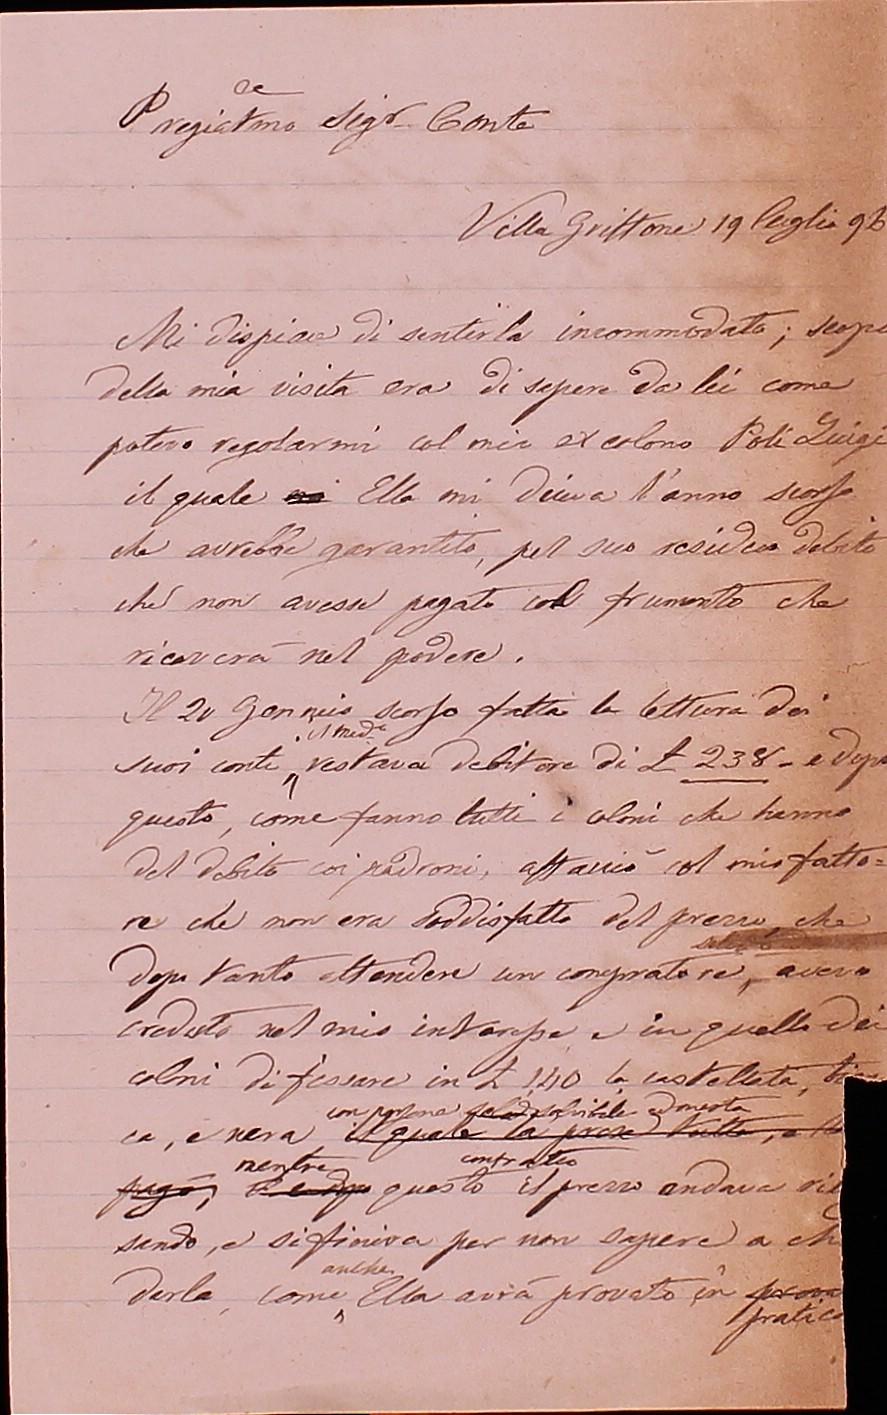 Pregiatmo Sigr Conte
Villa Griffone 19 luglio 96
Mi dispiace di sentirla incommodato; scopo
della mia visita era di sapere da lei come
potevo regolarmi col mio ex colono Poli Luigi
il quale Ella mi diceva l'anno scorso
che avrebbe garantito, pel suo residuo debito
che non avesse pagato col frumento che
ricaverà nel podere.
Il 20 Gennaio scorso fatta la lettura dei
il medo
suoi conti, restava debitore di £ 238 - e dopo
questo, come fanno tutti i coloni che hanno
del debito coi padroni, attaccò col mio fatto=
re che non era soddisfatto del prezzo, che
dopo tanto attendere un compratore, avevo
creduto nel mio interesse e in quello dei
coloni di fissare in £ 140 la castellata,
con persona solvibile ed onesta
ca, e nera il quale la prese tutta, e
mentre contratto
pagò, e dopo questo il prezzo andava
sando, e si finiva per non sapere a
anche
darla, come Ella avrà provato in prova
pratica